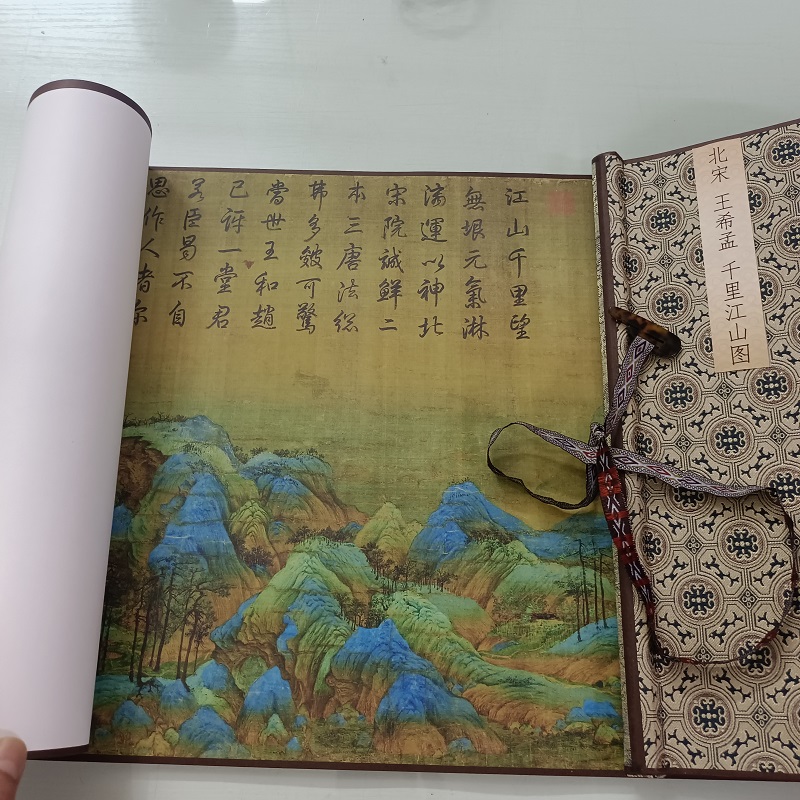 北宋 王希孟 千里江山图
江山千里望
無垠元氣淋
漓運以神北
宋院誠鮮二
本三唐法総
弗多皴可驚
當世王和趙
已訝一堂君
若臣曷不自
思作人者爾